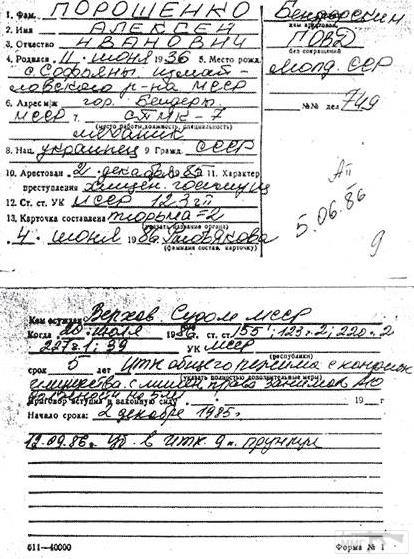 1. Фам. ПОРОШЕНКО
2. Имя АЛЕКСЕЙ
3. Отчество ИВАНОВИЧ
4. Родился 11 июня 1936 5. Место рожд.
с. Софьяны Измаиль-
ловского р-на МССР
6. Адрес м/ж гор. Бендеры
МССР 7. СПМК-7
(место работы, должность, специальность)
механик
8. Нац. украинец 9. Гражд. СССР
10. Арестован 2 декабря 1985 11. Характер
преступления хищен. госимущ
12. Ст. ст. УК МССР 123 ч II
13. Карточка составлена тюрьма-2
(указать название органа)
4 июня 1986
(фамилия состав. карточку)
Бендерским
кем арестован
ПОВД
без сокращений
Молд. ССР
№№ дел 749
5.06.86
9
Кем осужден Верхов Судом МССР
Когда 20 июля 1986 ст. ст. 155; 123 ч. 2; 220 ч. 2
227 ч. 1; 39 УК МССР
(республики)
срок 5 лет ИТК общего режима с конфиск
(указать полностью дополнительные меры)
имущества с лишен. права занимать
Приговор вступил в законную силу 19 г
Начало срока: 2 декабря 1985г
12.09.86. Уб. в ИТК
511—40000 Форма № 1